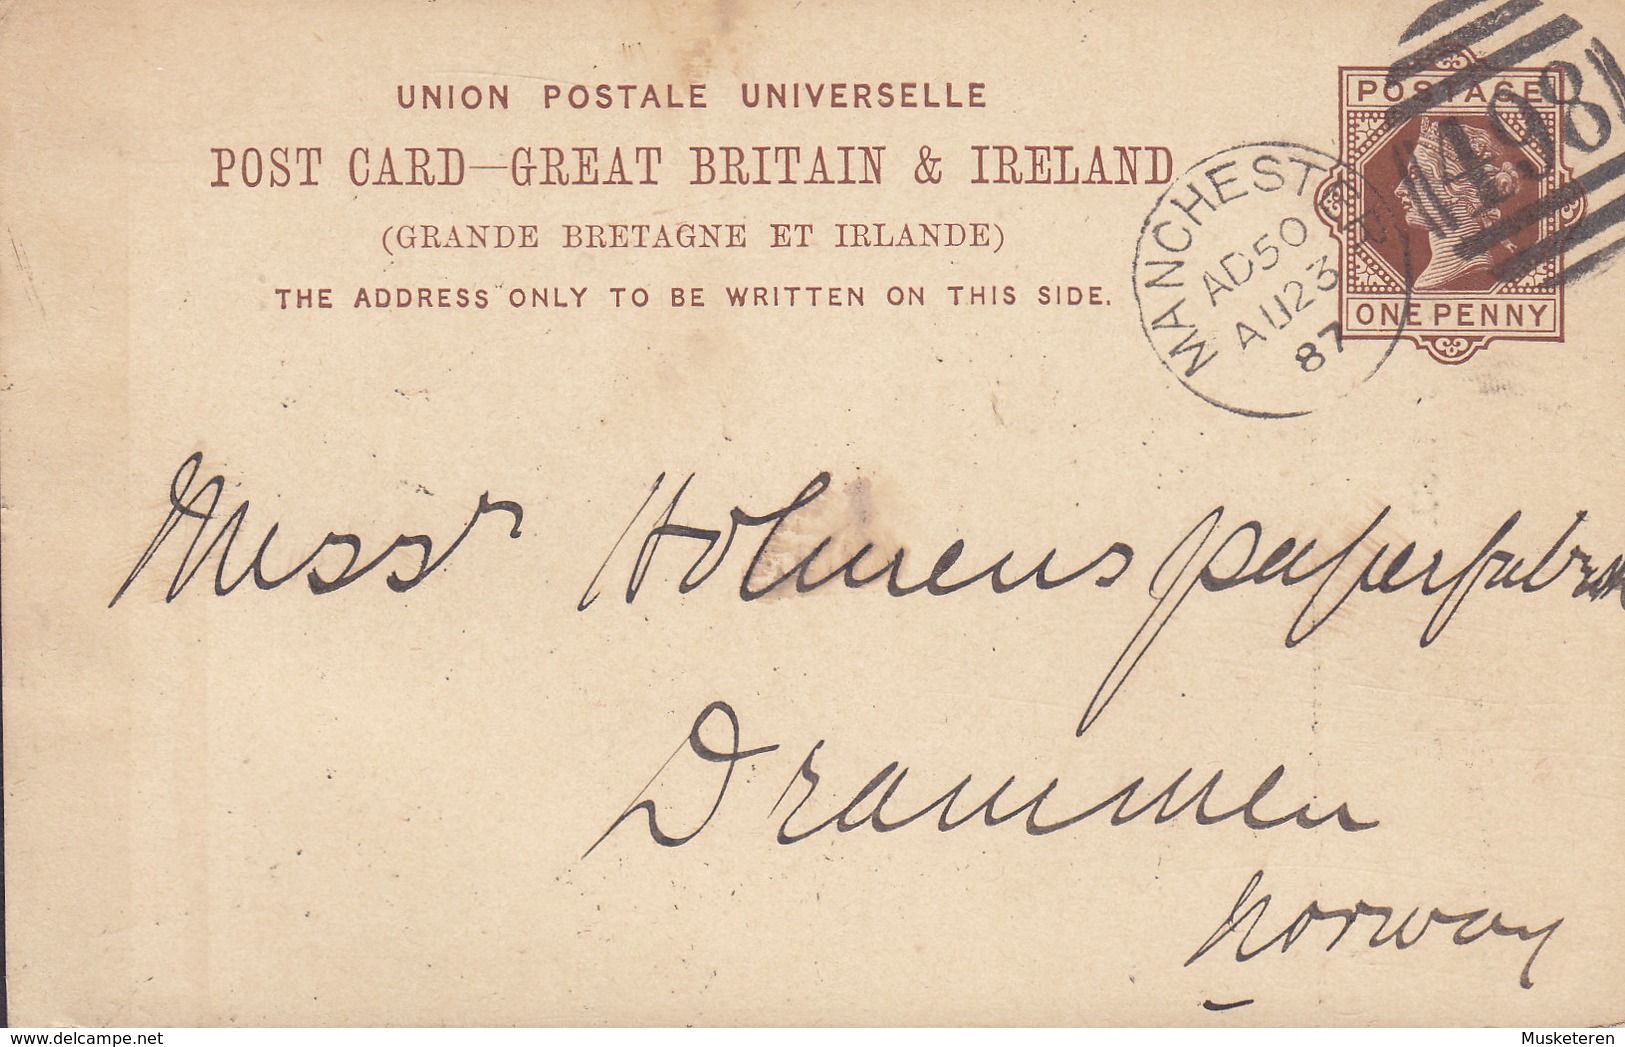 UNION POSTALE UNIVERSELLE
POST CARD—GREAT BRITAIN & IRELAND
(GRANDE BRETAGNE ET IRLANDE)
THE ADDRESS ONLY TO BE WRITTEN ON THIS SIDE.
POSTAGE
ONE PENNY
498
MANCHESTER
AD50
AU23
87
Messr Holmens paperfabrik
Drammen
Norway
delcampe.net
Musketeren